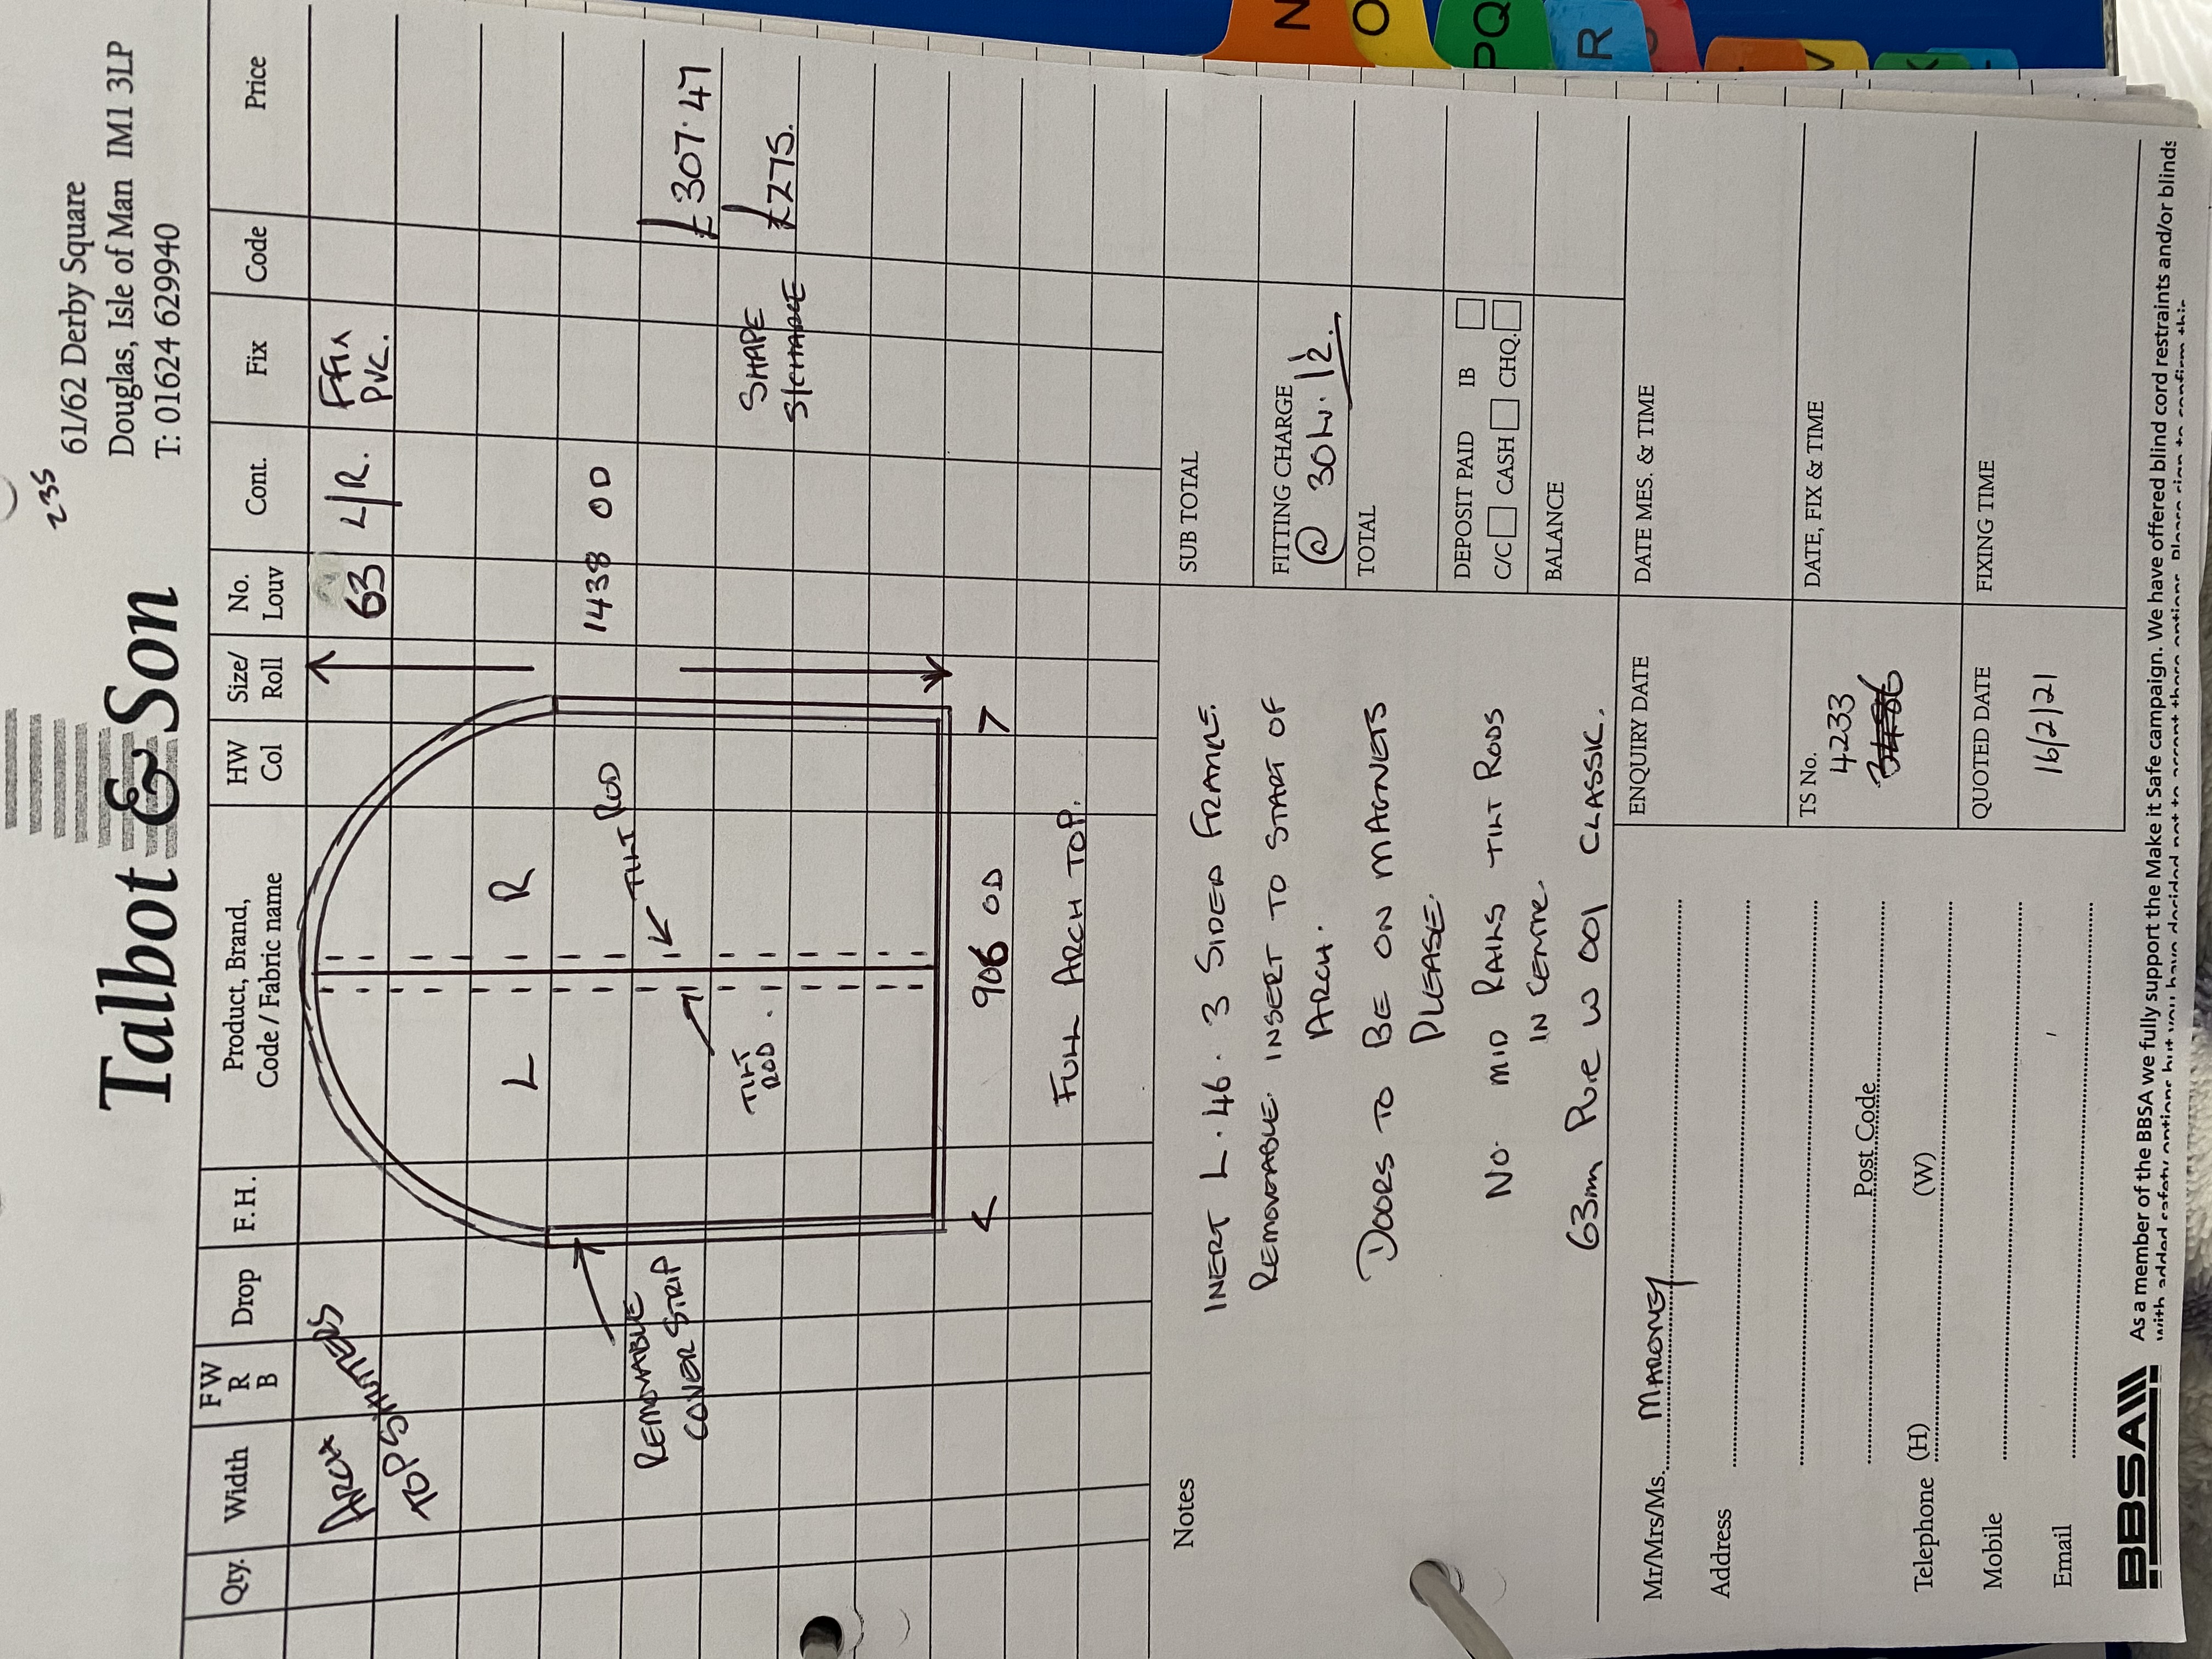 235
Talbot & Son
61/62 Derby Square
Douglas, Isle of Man IM1 3LP
T: 01624 629940
Qty. Width FW R B Drop F.H. Product, Brand, Code / Fabric name HW Col Size/ Roll No. Louv Cont. Fix Code Price
ARCH
TOP SHUTTERS
63 L/R. FFIX
PVC.
L R
1438 OD
TILT ROD
REMOVABLE
COVER STRIP
TILT
ROD.
£307.47
SHAPE
S/CHARGE £275.
906 OD
FULL ARCH TOP.
Notes
INERT L.46. 3 SIDED FRAME.
REMOVABLE INSERT TO START OF
ARCH.
DOORS TO BE ON MAGNETS
PLEASE.
NO MID RAILS TILT RODS
IN CENTRE.
63mm Pure W 001 CLASSIC.
SUB TOTAL
FITTING CHARGE
@ 30 hr. 1½.
TOTAL
DEPOSIT PAID IB
C/C CASH CHQ.
BALANCE
Mr/Mrs/Ms. MARONEY
Address
Post Code
Telephone (H) (W)
Mobile
Email
ENQUIRY DATE
DATE MES. & TIME
TS No.
4233
DATE, FIX & TIME
QUOTED DATE
16/2/21
FIXING TIME
BBSA
As a member of the BBSA we fully support the Make it Safe campaign. We have offered blind cord restraints and/or blinds
with added safety options but you have decided not to accept these options. Please sign to confirm this
N
O
PQ
R
V
X